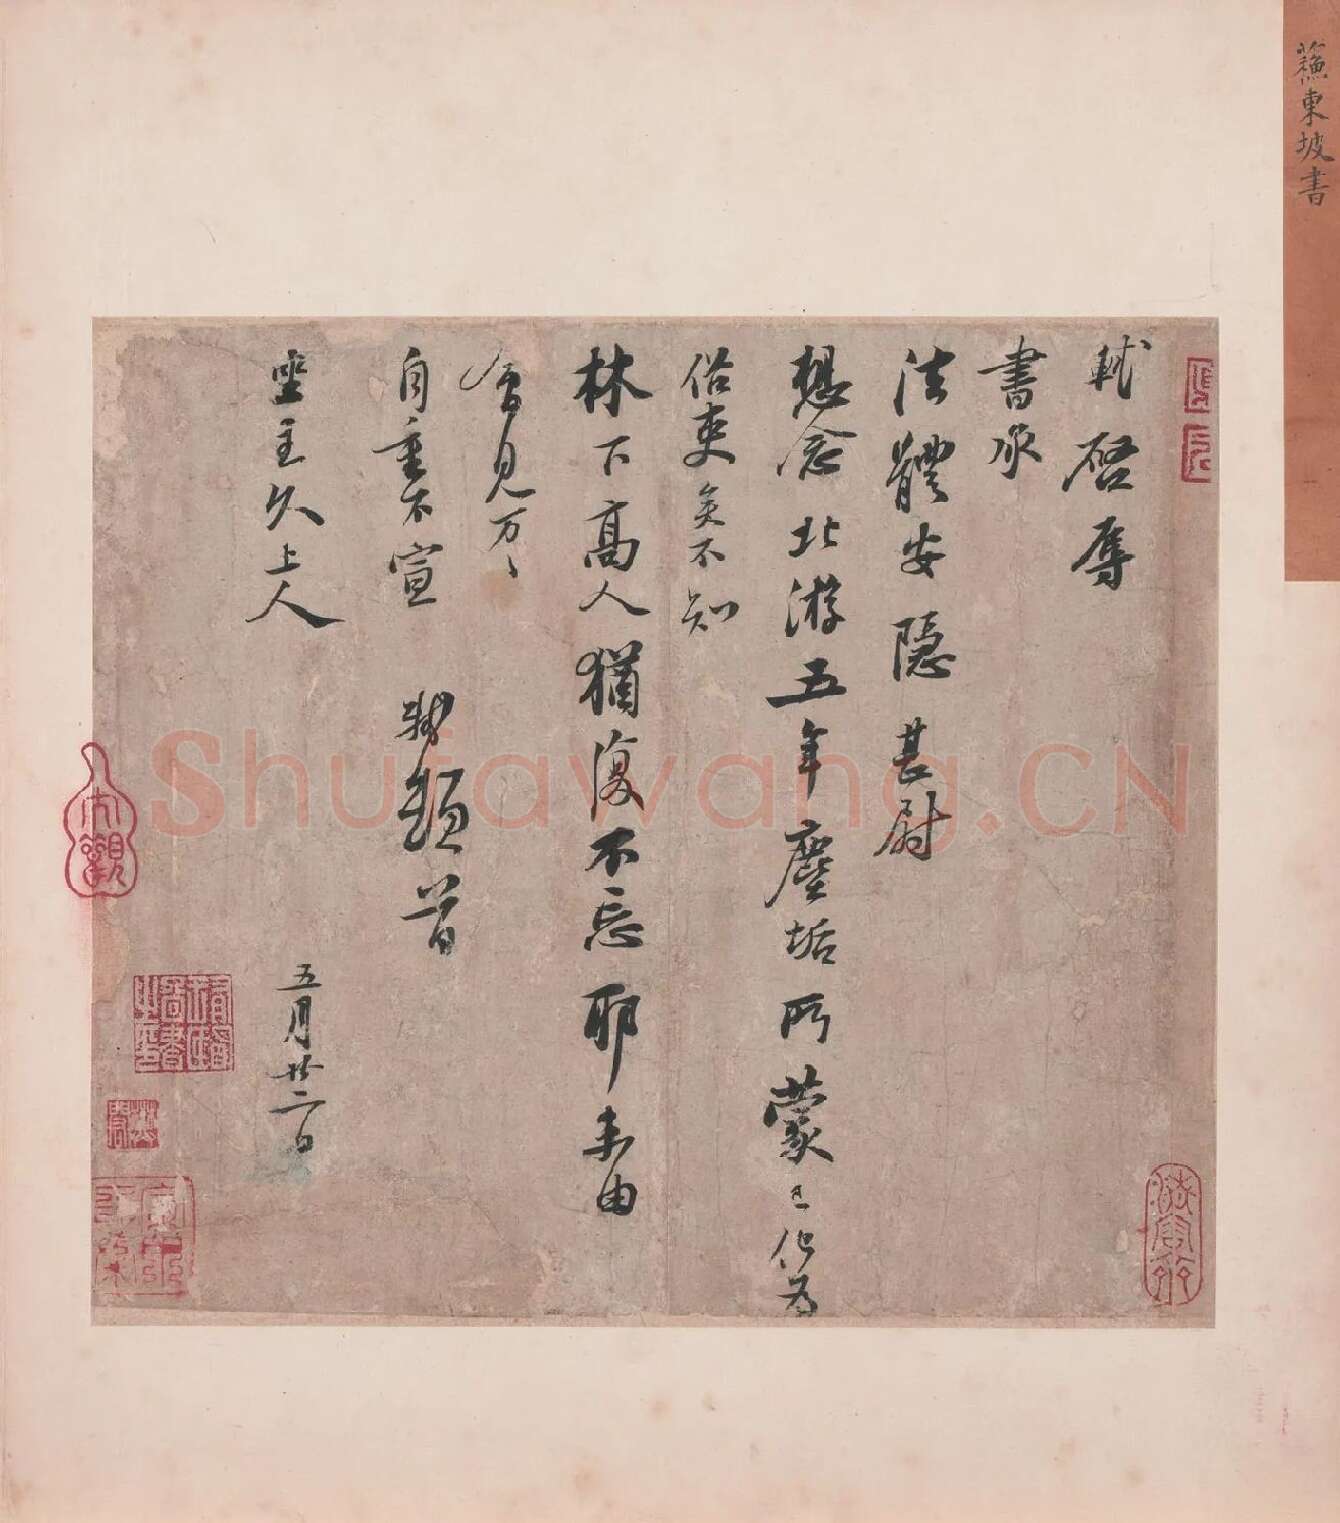 蘓東坡書
軾啓辱
書承
法體安隱甚尉
想念北游五年塵垢所蒙已化為
俗吏矣不知
林下高人猶復不忘耶未由
會見万〻
自重不宣 軾頓首
坐主久上人 五月廿二日
Shufawang.CN